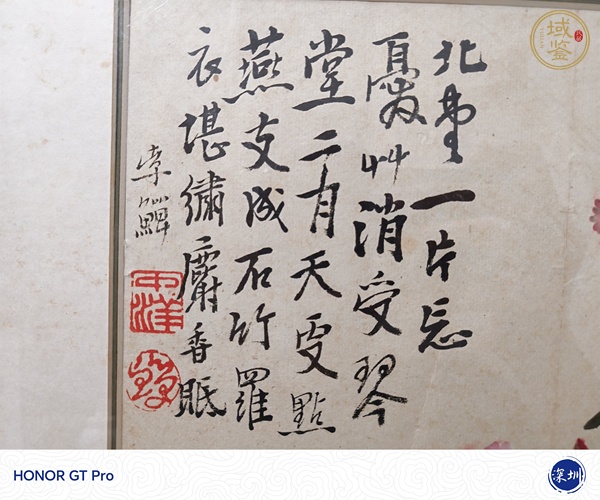 北堂一片忘
憂艸消受琴
堂二月天點
燕支成石竹羅
衣堪繡麝香眠
李鱓
中洋
域鉴
HONOR GT Pro
深圳